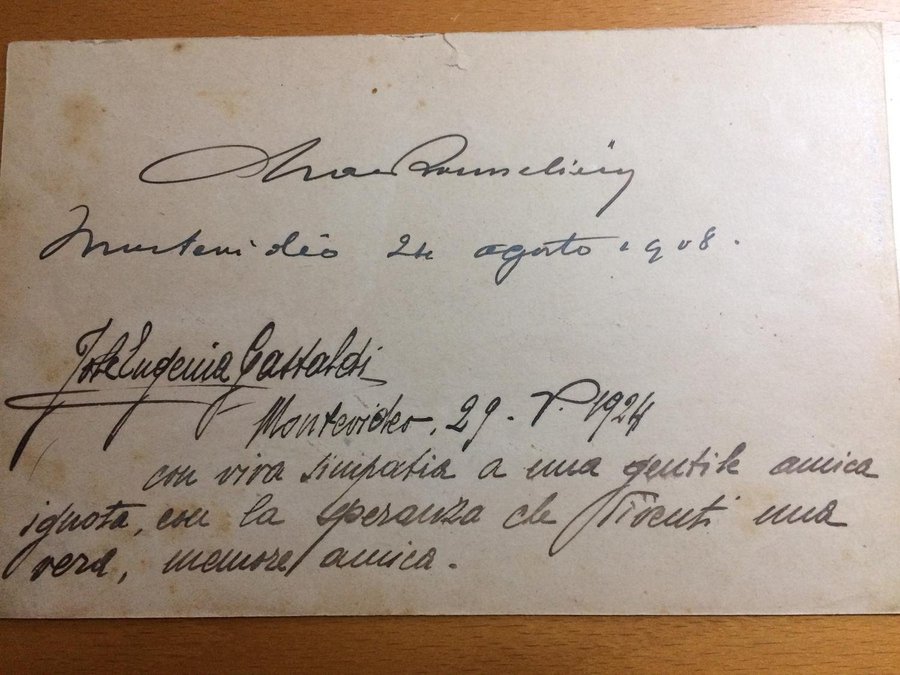 Montevideo 24 agosto 1908.
Gastaldi
Montevideo, 29. V. 1924
con viva simpatia a una gentile amica
ignota, con la speranza che diventi una
vera, memore amica.